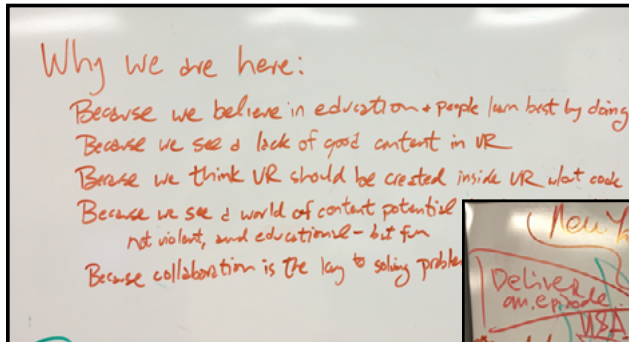 Why we are here:
Because we believe in education + people learn best by doing
Because we see a lack of good content in VR
Because we think VR should be created inside VR w/out code
Because we see a world of content potential
not violent, and educational - but fun
Because collaboration is the key to solving problem
New
Deliver
an episode